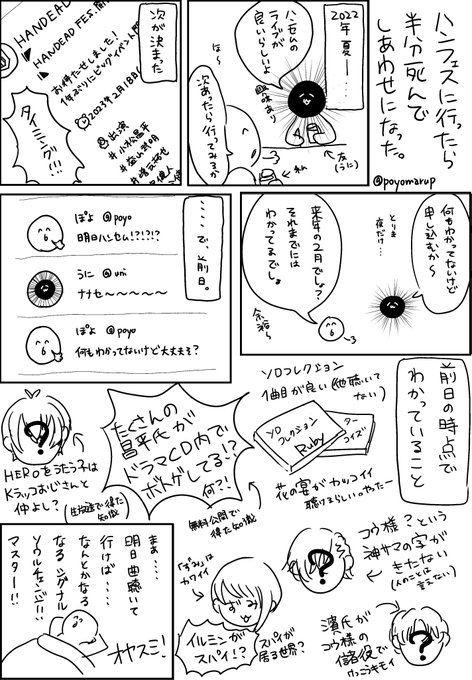 ハンフェスに行ったら
半分死んで
しあわせになった。
@poyomarup
2022年夏――…
ハンセムの
ライブが
良いらしいよ
興味あり
友
(うに)
私
ほ〜
次あったら行ってみるか
次が決まった
HANDEAD FES.開
HANDEAD FES
お待たせしました!
1年ぶりにビッグイベント開
2023年2月18日
出演
#小松昌平
#梅原裕一郎
タイミング!!!
何もわかってないけど
申し込むか〜
とりま
夜だけ…
来年の2月でしょ?
それまでには
わかってるでしょ
余裕〜
・・・・で、前日。
ぽよ @poyo
明日ハンセム!?!?!?
うに @uni
ナナセ〜〜〜〜〜
ぽよ @poyo
何もわかってないけど大丈夫そ?
前日の時点で
わかっていること
ソロコレクション
1曲目が良い(他聴いてない)
ソロ
コレクション
Ruby
ターコイズ
花の宴がカッコイイ
聴けるらしい。やったー
たくさんの
昌平氏が
ドラマCD内で
ボドゲしてる!?
何?!
無料公開で
得た知識
HEROをうたう子は
Kラッコおじさんと
仲よし?
(生放送で得た
知識)
コウ様?という
神サマの字が
きたない
(人のことは
言えない)
「ずみ」は
カワイイ
ずみ
イルミンが
スパイ!?
スパイが
居る世界?
濱氏が
コウ様の
儲役で
けっこうキモイ
まぁ・・・・
明日曲聴いて
行けば・・・・
なんとかなる
なるシグナル
ソウルチェンジ!!
マスター!!
オヤスミ!